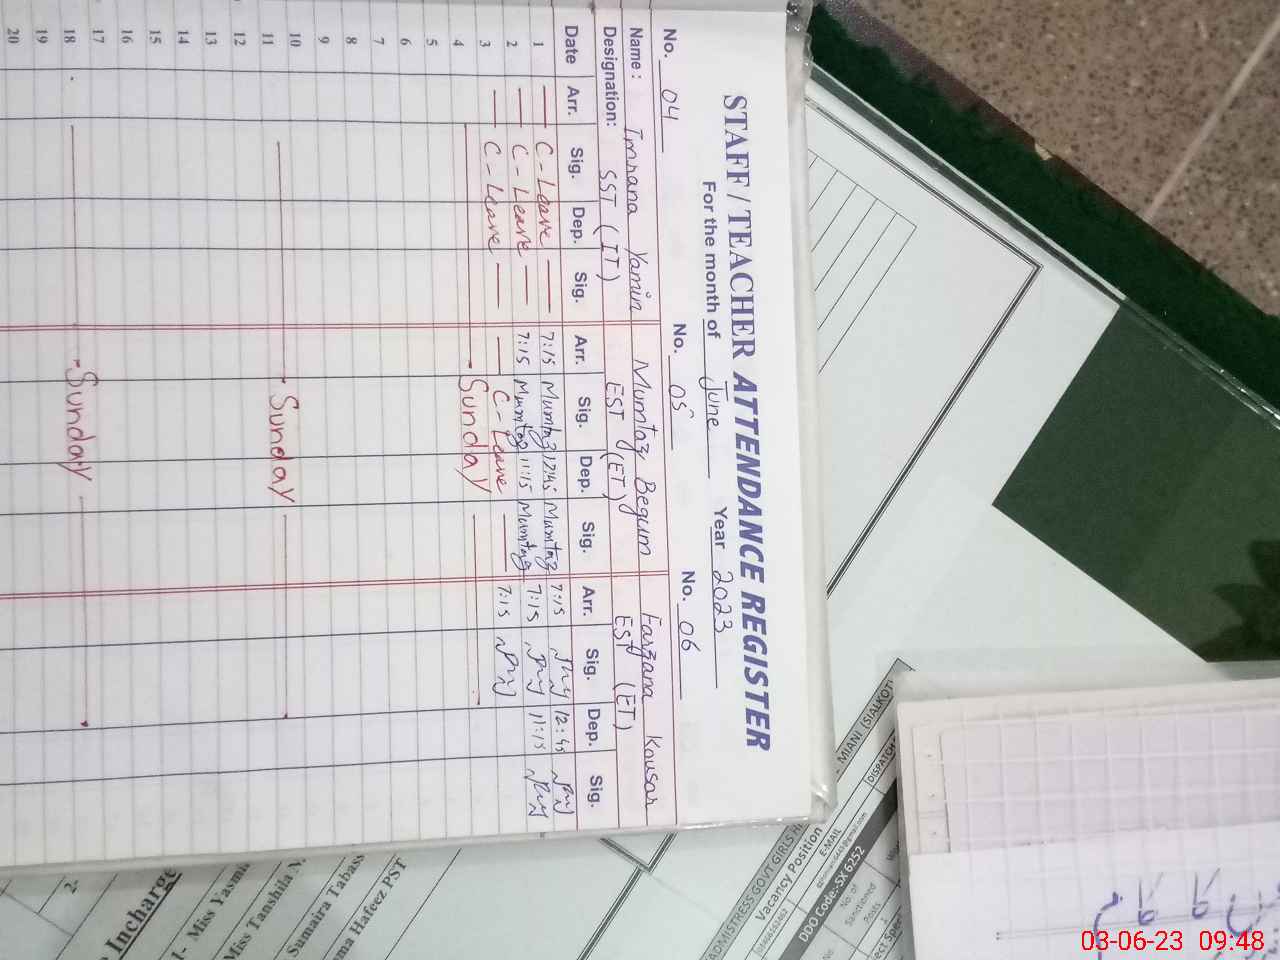 STAFF / TEACHER ATTENDANCE REGISTER
For the month of June Year 2023
No. 04 No. 05 No. 06
Name: Imrana Yamin Mumtaz Begum Farzana Kousar
Designation: SST (IT) EST (ET) EST (ET)
Date Arr. Sig. Dep. Sig. Arr. Sig. Dep. Sig. Arr. Sig. Dep. Sig.
1 C-Leave 7:15 Mumtaz 12:45 Mumtaz 7:15 12:45
2 C-Leave 7:15 Mumtaz 11:15 Mumtaz 7:15 11:15
3 C-Leave C-Leave 7:15
4 Sunday
5
6
7
8
9
10 Sunday
11
12
13
14
15
16
17
18 Sunday
19
20
MIANI (SIALKOT)
DISPATCH
GOVT GIRLS
Vacancy Position
E-MAIL
DDO Code:-SX 6252
No. of Sanctioned Posts
Incharge
1- Miss Yasmi
Miss Tanshila N.
Sumaira Tabass
ma Hafeez PST
2-
03-06-23 09:48